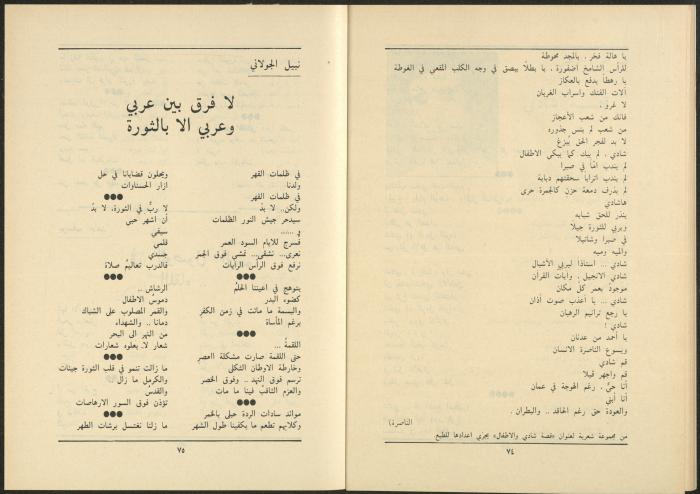 يا هالة فخر . بالمجد محوطة
للرأس الشامخ اضفورة . يا بطلاً يبصق في وجه الكلب المقعي في الغوطة
يا رهطاً يدفع بالعكاز
آلات الفتك واسراب الغربان
لا غرو .
فانك من شعب الأعجاز
من شعب لم ينس جذوره
لا بد لفجر الحق يبزغ
شادي . لم يبك كما يبكي الاطفال
لم يندب امّا في صبرا
لم يندب اترابا سحقتهم دبابة
لم يذرف دمعة حزن كالجمرة حرى
هاشادي
ينذر للحق شبابه
ويربي للثورة جيلاً
في صبرا وشاتيلا
والميه وميه
شادي ... استاذا ليربي الأشبال
شادي الانجيل . وايات القرآن
موجودٌ بعمر كل مكان
شادي ... يا أعذب صوت أذان
يا رجع ترانيم الرهبان
شادي !
يا أحمد من عدنان
ويسوع الناصرة الانسان
قم شادي
قم واجهر قيلا
أنا حيٌّ . رغم الهوجة في عمان
أنا أبقى
والعودة حق رغم الحاقد .. والبطران .
الناصرة)
من مجموعة شعرية لعنوان «قصة شادي والاطفال» يجري اعدادها للطبع.
٧٤
نبيل الجولاني
لا فرق بين عربي
وعربي الا بالثورة
في ظلمات القهر
ولدنا
في ظلمات القهر
ولكن.. لا بدّ
سيدحر جيش النور الظلمات
و ......
فسرج للايام السود العمر
نعرى... نشقى... نمشي فوق الجمر
نرفع فوق الرأس الرايات
يتوهج في اعيننا الحلمُ
كضوء البدر
والبسمة ما ماتت في زمن الكفر
برغم المأساة
اللقمةُ ...
حتى اللقمة صارت مشكلة العصر
وخارطة الاوطان الثكلى
ترسم فوق النهد .. وفوق الخصر
والعزم الثاقبُ فينا ما مات
موائد سادات الردة حبلى بالخمر
وكلابهم تطعم ما يكفينا طول الشهر
ويحلون قضايانا في حل
ازار الحسناوات
لا ربٌّ في الثورة، لا بدّ
أن اشهر حبي
سيفي
قلمي
جسدي
فالدرب تعاليمُ صلاة
الرشاش ..
دموس الاطفال
والقمر المصلوب على الشباك
دمانا .. والشهداء
من النهر الى البحر
شعار لا يعلوه شعارات
ما زالت تنمو في قلب الثورة جينات
والكرمل ما زال
والقدس
تؤذن فوق السور الارهاصات
ما زلنا نغتسل برشات الطهر
٧٥